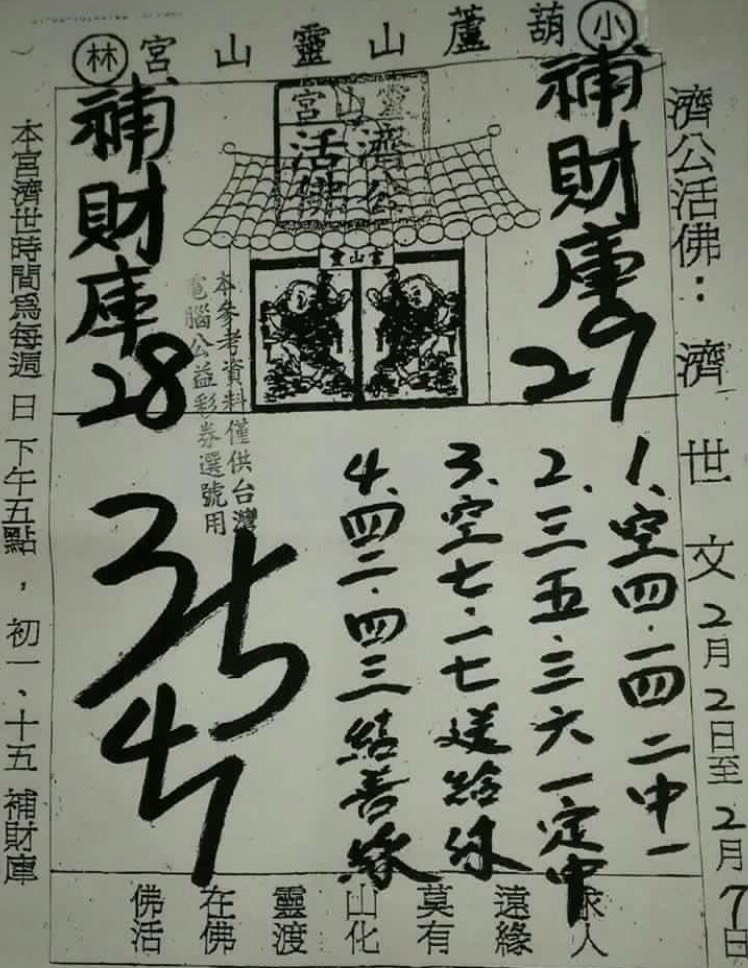 小 葫蘆山靈山宮 林
濟公活佛：濟世文2月2日至2月7日
補財庫29
靈山宮
濟公活佛
補財庫28
本參考資料僅供台灣
電腦公益彩券選號用
1、空四·一四二中一
2、三五·三六一定中
3、空七·一七送給你
4、四二·四三結善緣
35
佛在靈山莫遠求
活佛渡化有緣人
本宮濟世時間爲每週日下午五點，初一、十五補財庫